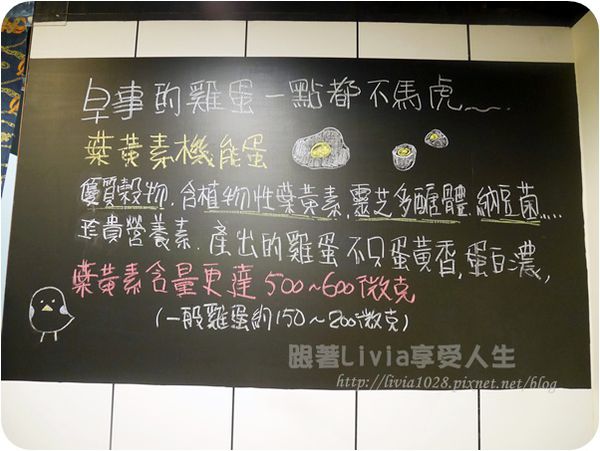 早事的雞蛋一點都不馬虎~~...
葉黃素機能蛋
優質穀物.含植物性葉黃素,靈芝多醣體.納豆菌....
珍貴營養素.產出的雞蛋不只蛋黃香,蛋白濃,
葉黃素含量更達500~600微克
(一般雞蛋約150~200微克)
跟著Livia享受人生
http://livia1028.pixnet.net/blog